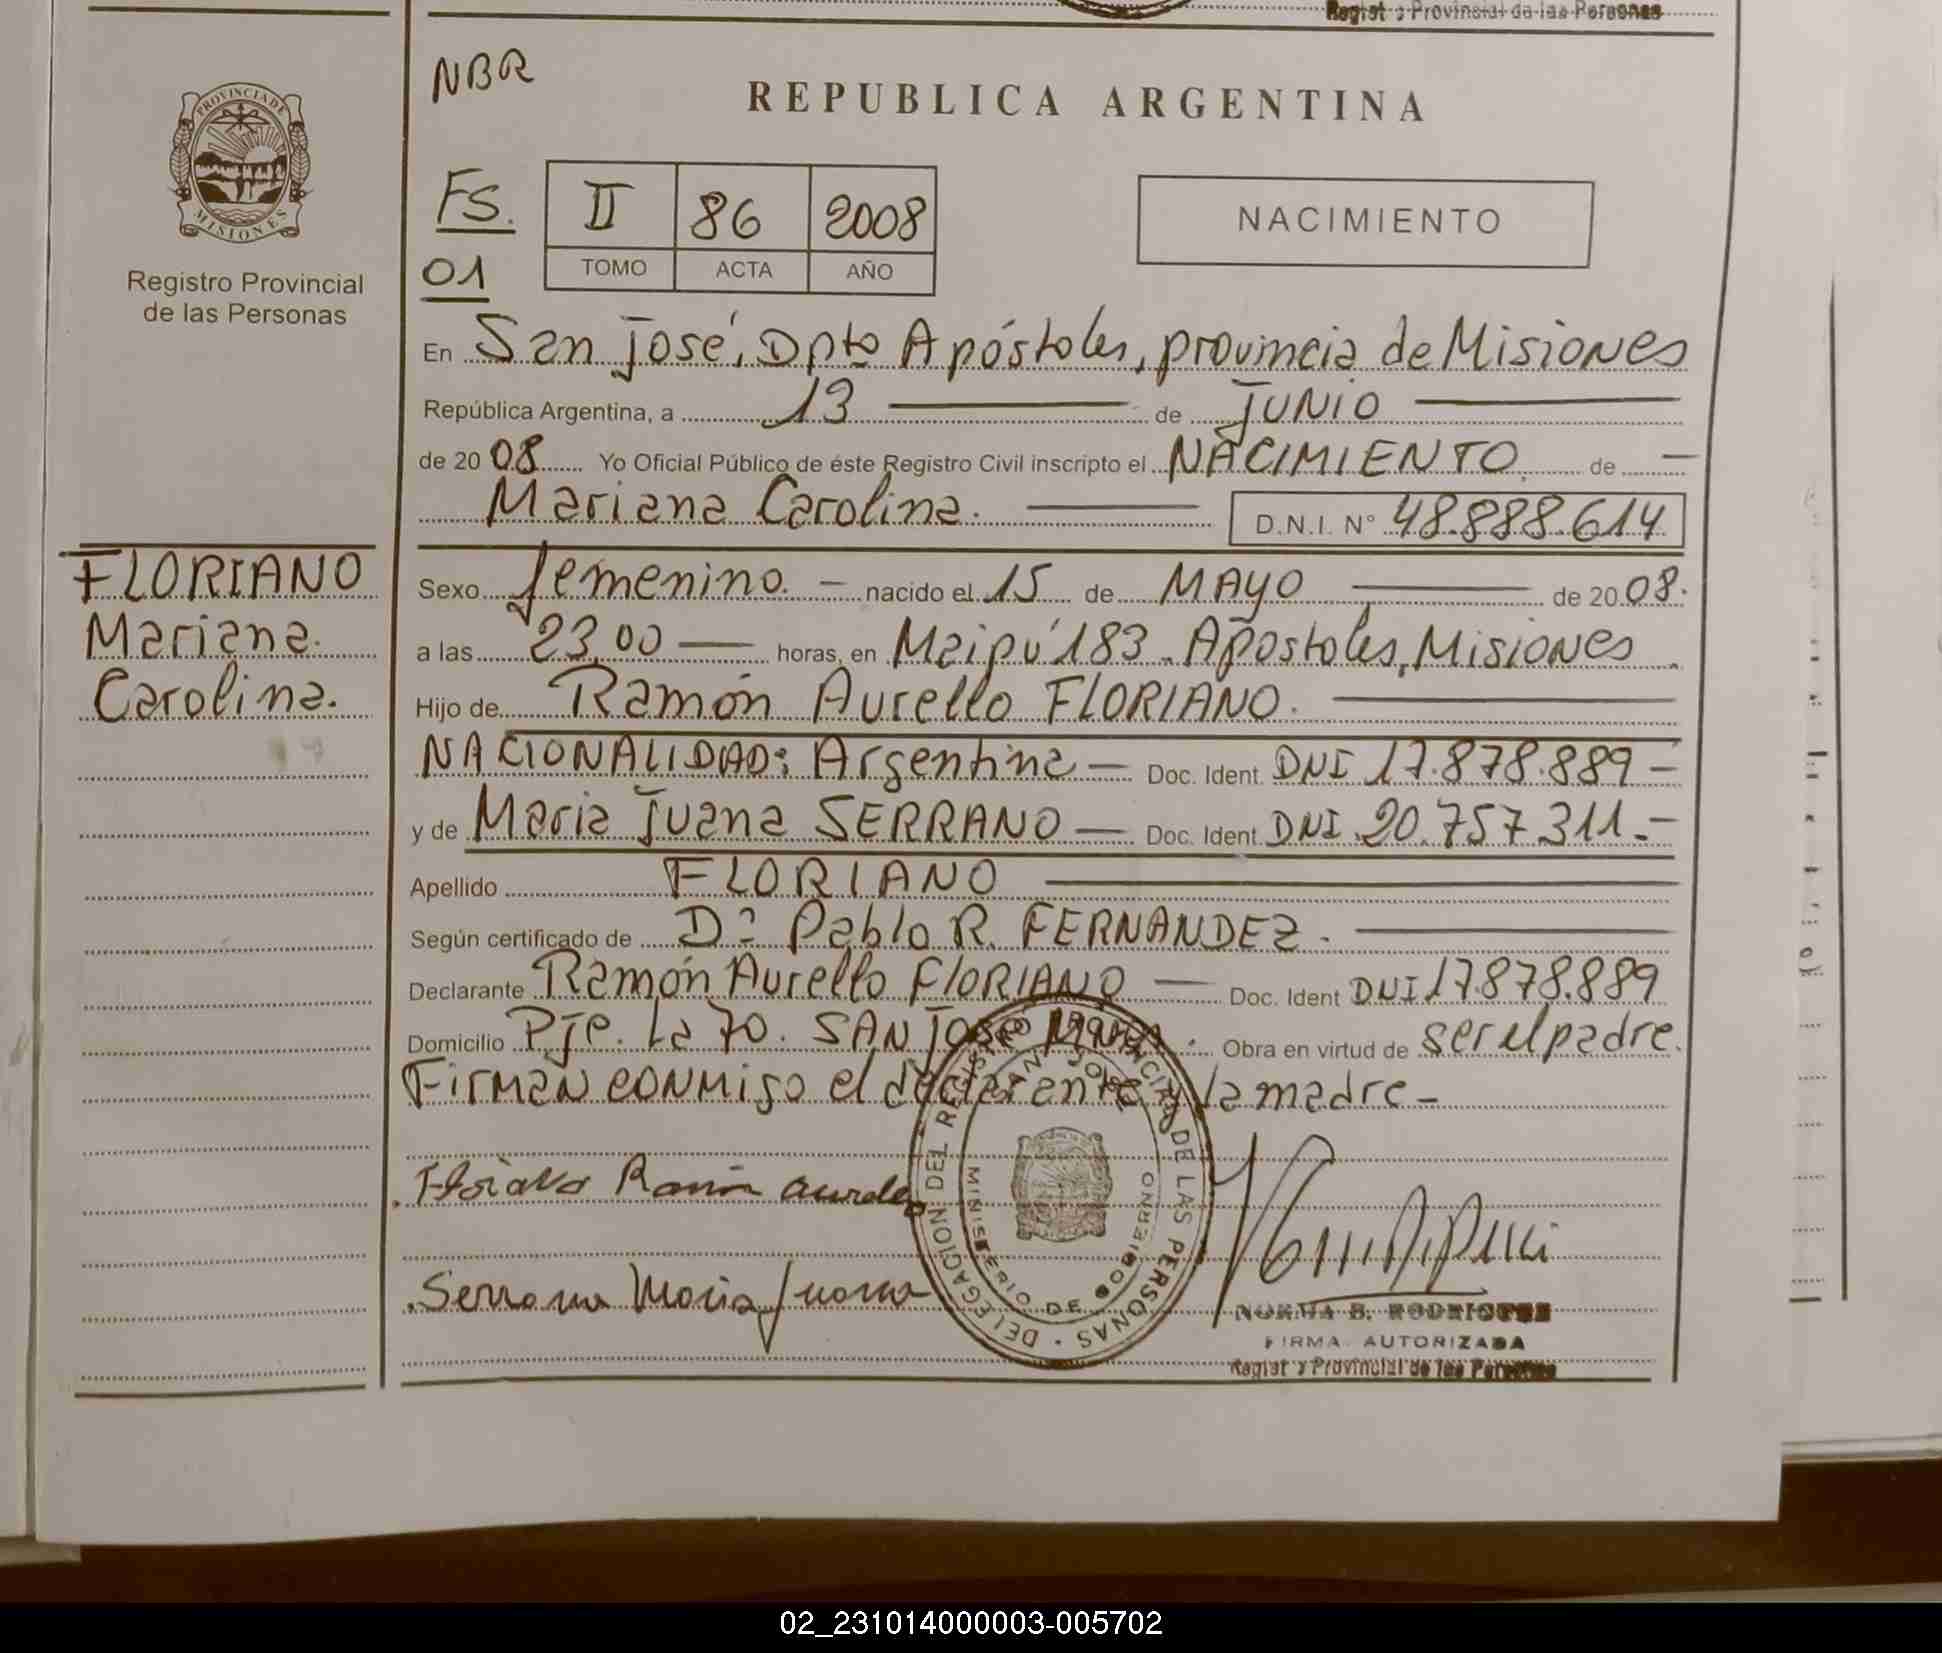 Regist o Provincial de las Personas
PROVINCIA DE
MISIONES
Registro Provincial
de las Personas
NBR
REPUBLICA ARGENTINA
FS.
01
II 86 2008
TOMO ACTA AÑO
NACIMIENTO
En San José, Dpto Apóstoles, provincia de Misiones
República Argentina, a 13 de JUNIO
de 20 08 Yo Oficial Público de éste Registro Civil inscripto el NACIMIENTO de
Mariana Carolina. D.N.I. N° 48.888.614
FLORIANO
Mariana.
Carolina.
Sexo femenino. nacido el 15 de MAYO de 20 08.
a las 23,00 horas, en Maipú 183. Apóstoles, Misiones
Hijo de Ramón Aurelio FLORIANO.
NACIONALIDAD: Argentina Doc. Ident. DNI 17.878.889
y de Maria Juana SERRANO Doc. Ident. DNI 20.757.311.
Apellido FLORIANO
Según certificado de D° Pablo R. FERNANDEZ.
Declarante Ramón Aurelio FLORIANO Doc. Ident DNI 17.878.889
Domicilio Pje. La 70. SAN JOSE Obra en virtud de ser el padre.
Firman conmigo el declarante y la madre
Floriano Ramón Aurelio
Serrano Maria Juana
DELEGACION DEL REGISTRO PROVINCIAL DE LAS PERSONAS
SAN JOSE
MINISTERIO DE GOBIERNO
NORMA B. RODRIGUEZ
FIRMA AUTORIZADA
Regist o Provincial de las Personas
02_231014000003-005702